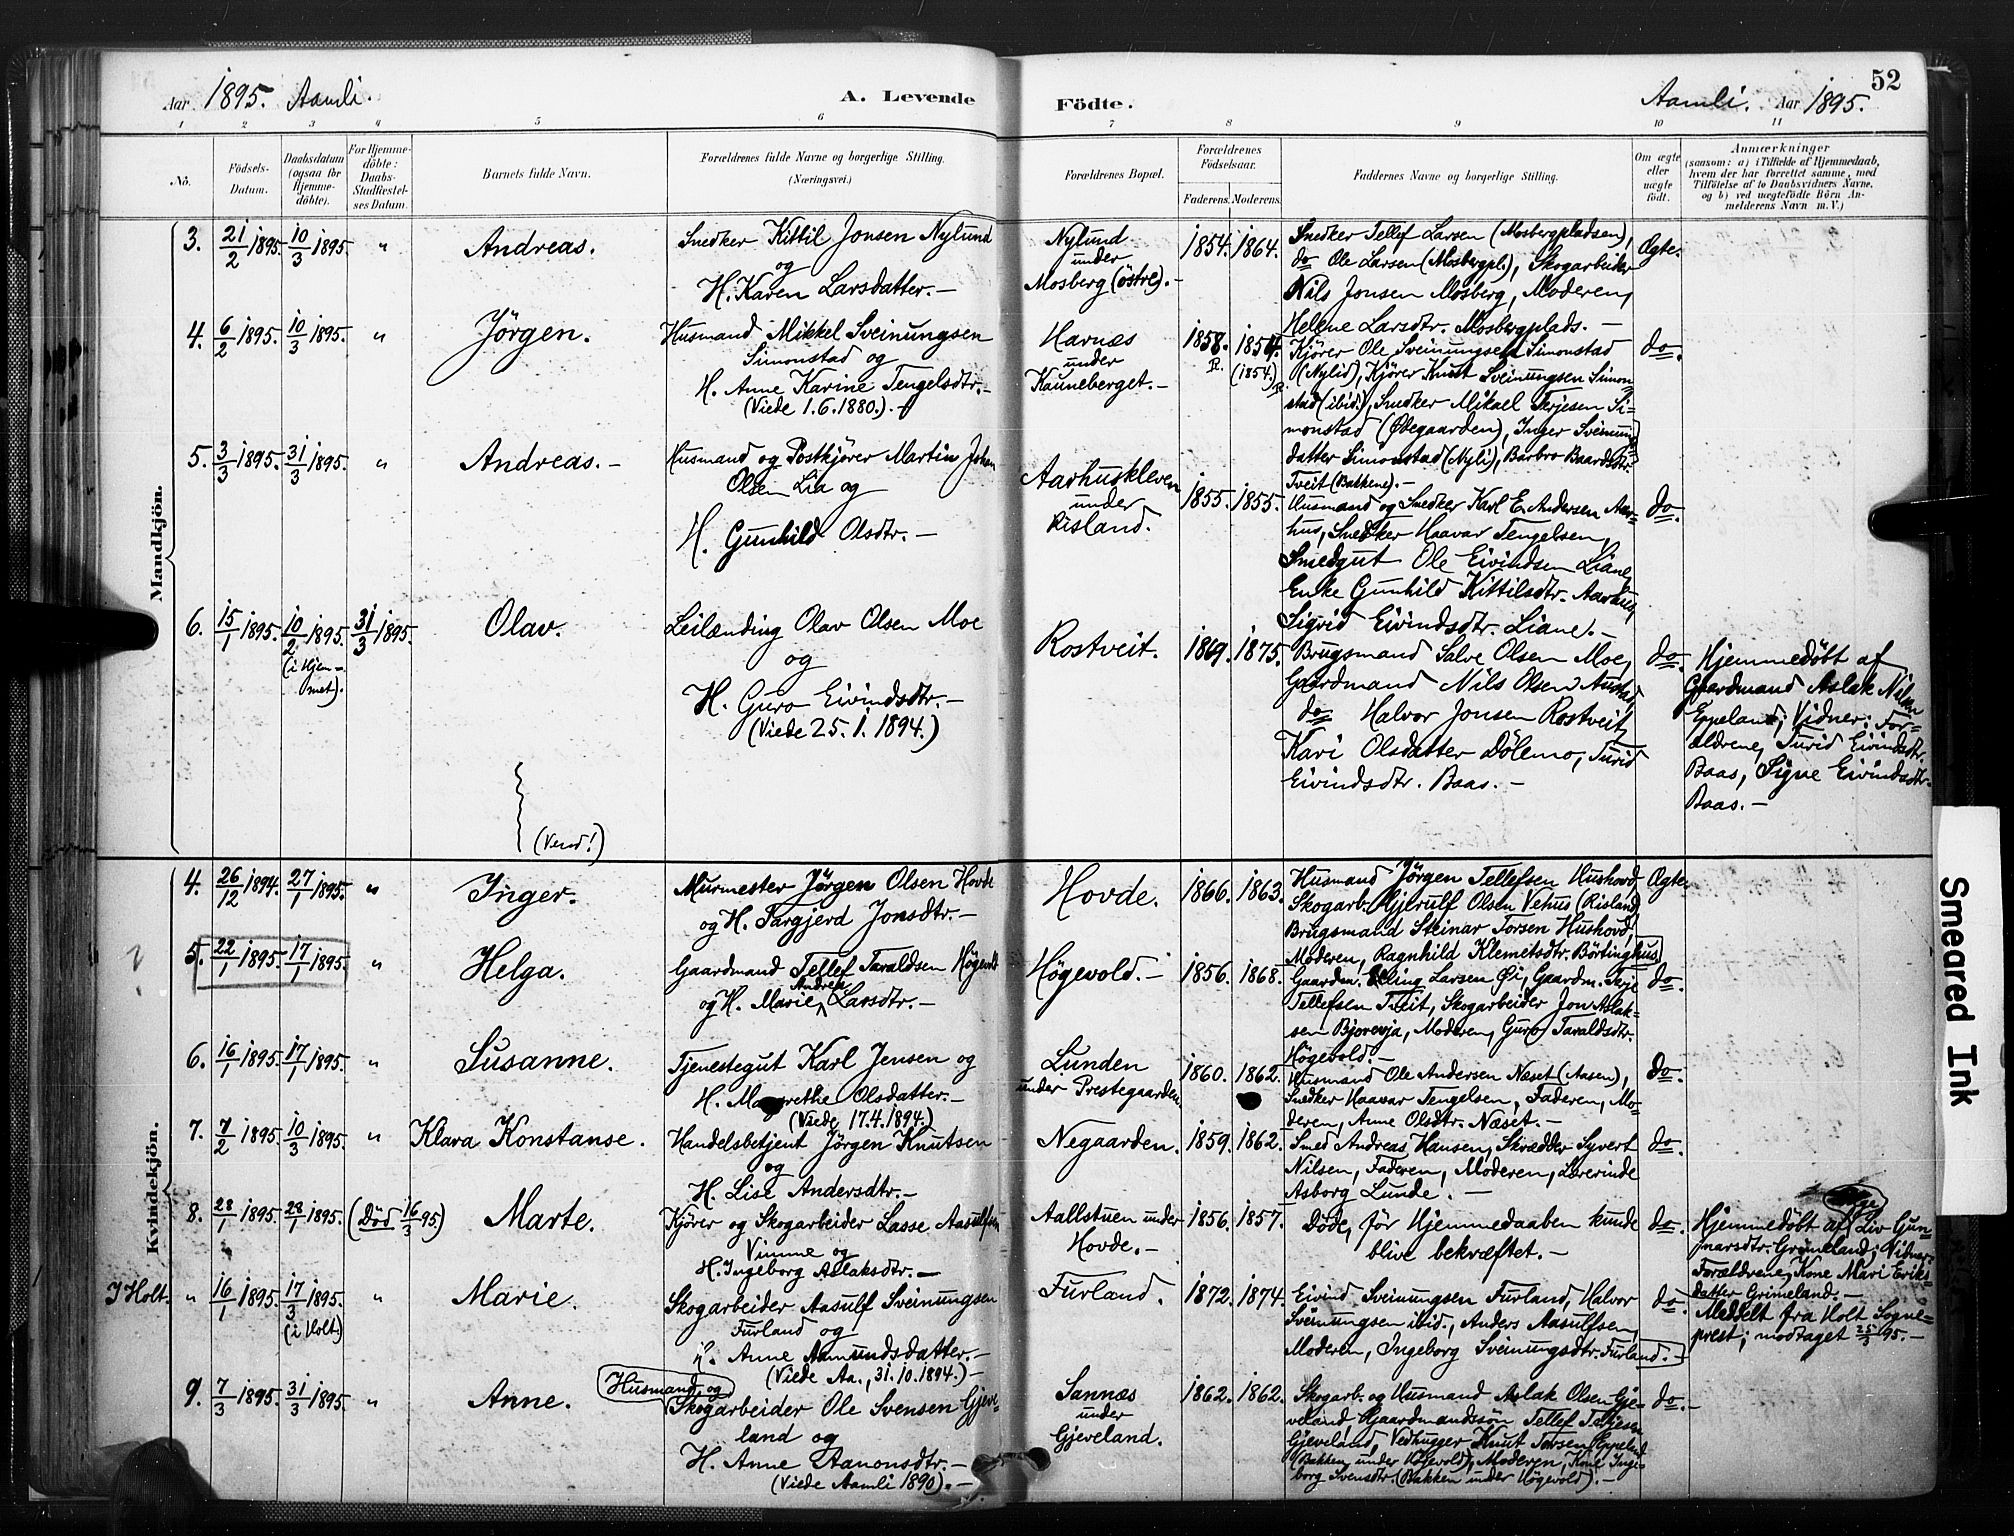 52
Aar 1895. Aamli.
A. Levende Födte.
Aamli. Aar 1895.
1 2 3 4 5 6 7 8 9 10 11
Nö.
Födsels-Datum.
Daabsdatum (ogsaa for Hjemme-döbte).
For Hjemme-döbte: Daabs-Stadfæstel-ses Datum.
Barnets fulde Navn.
Forældrenes fulde Navne og borgerlige Stilling.
(Næringsvei.)
Forældrenes Bopæl.
Forældrenes Födselsaar.
Faderens. Moderens.
Faddernes Navne og borgerlige Stilling.
Om ægte eller uægte födt.
Anmærkninger
(saasom: a) i Tilfælde af Hjemmedaab,
hvem der har forrettet samme, med
Tilföielse af to Daabsvidners Navne,
og b) ved uægtefödte Börn An-
melderens Navn m. V.)
Mandkjön.
3. 21/2 1895. 10/3 1895. " Andreas.
Snedker Kittil Jonsen Nylund
og
H. Karen Larsdatter. —
Nylund
under
Mosberg (östre). —
1854. 1864.
Snedker Tellef Larsen (Mosbergpladsen),
do Ole Larsen (Mosbergpl.), Skogarbeider
Nils Jonsen Mosberg, Moderen,
Helene Larsdtr. Mosbergplads. —
Ægte.
4. 6/2 1895. 10/3 1895. " Jörgen.
Husmand Mikkel Sveinungsen
Simonstad og
H. Anne Karine Tengelsdtr. —
(Viede 1.6.1880.). —
Harnæs
under
Kauneberget. —
1858. 1854.
(1854.)
Kjörer Ole Sveinungsen Simonstad
(Nylid), Kjörer Knut Sveinungsen Simon-
stad (ibid.), Snedker Mikael Terjesen Si-
monstad (Ödegaarden), Inger Sveinungs-
datter Simonstad (Nyli), Barbro Baardsdtr.
Tveit (Bakkene). —
do.
5. 3/3 1895. 31/3 1895. " Andreas. —
Husmand og Postkjörer Martin Johan
Olsen Lia og
H. Gunhild Olsdtr. —
Aarhuskleven
under
Risland.
1855. 1855.
Husmand og Snedker Karl E. Andersen Aar-
hus, Snedker Haavar Tengelsen,
Smedgut Ole Eivindsen Liane,
Enke Gunhild Kittilsdtr. Aarhus,
Sigrid Eivindsdtr. Liane. —
do.
6. 15/1 1895. 10/2 1895. (i Hjem-met). 31/3 1895. Olav.
Leilænding Olav Olsen Moe
og
H. Guro Eivindsdtr. —
(Viede 25. 1. 1894.)
Rostveit.
1869. 1875.
Brugsmand Salve Olsen Moe,
Gaardmand Nils Olsen Austad,
do Halvor Jonsen Rostveit,
Kari Olsdatter Dölemo, Turid
Eivindsdtr. Baas. —
do.
Hjemmedöbt af
Gaardmand Aslak Nilsen
Eppeland; Vidner: For-
ældrene, Turid Eivindsdtr.
Baas, Signe Eivindsdtr.
Baas. —
(Vend!)
Kvindekjön.
4. 26/12 1894. 27/1 1895. " Inger.
Murmester Jörgen Olsen Hovde
og H. Targjerd Jonsdtr. —
Hovde.
1866. 1863.
Husmand Jörgen Tellefsen Hushovd,
Skogarb. Kjerulf Olsen Vehus (Risland)
Brugsmand Steinar Torsen Hushovd,
Moderen, Ragnhild Klemetsdtr. Börtinghus.
Ægte.
5. 22/1 1895. 17/1 1895. " Helga.
Gaardmand Tellef Taraldsen Högevold
og H. Marie Andrea Larsdtr. —
Högevold. —
1856. 1868.
Gaardm. Elling Larsen Öi, Gaardm. Terje
Tellefsen Tveit, Skogarbeider Jon Aslak-
sen Bjorevja, Moderen, Guro Taraldsdtr.
Högevold. —
do.
6. 16/1 1895. 17/1 1895. " Susanne.
Tjenestegut Karl Jensen og
H. Margrethe Olsdatter. —
(Viede 17.4.1894.)
Lunden
under Prestegaarden.
1860. 1862.
Husmand Ole Andersen Næset (Aasen),
Snedker Haavar Tengelsen, Faderen, Mo-
deren, Anne Olsdtr. Næset. —
do.
7. 7/2 1895. 10/3 1895. " Klara Konstanse.
Handelsbetjent Jörgen Knutsen
og
H. Lise Andersdtr. —
Negaarden.
1859. 1862.
Smed Andreas Hansen, Skrædder Syvert
Nilsen, Faderen, Moderen, Lærerinde
Asborg Lunde. —
do.
8. 28/1 1895. 28/1 1895. (Död 16/3 95) Marte.
Kjörer og Skogarbeider Lasse Aasulfsen
Vimme og
H. Ingeborg Aslaksdtr. —
Aallstuen under
Hovde. —
1856. 1857.
Döde, för Hjemmedaaben kunde
blive bekræftet. —
do.
Hjemmedöbt af Liv Gun-
narsdtr. Grimeland; Vidner:
Forældrene, Kone Mari Eriks-
datter Grimeland. —
I Holt. " 16/1 1895. 17/3 1895. (i Holt.) " Marie.
Skogarbeider Aasulf Sveinungsen
Furland og
H. Anne Aamundsdatter. —
(Viede Aa., 31.10.1894.) —
Furland.
1872. 1874.
Eivind Sveinungsen Furland, Halvor
Sveinungsen ibid., Anders Aasulfsen,
Moderen, Ingeborg Sveinungsdtr. Furland.
do.
Meddelt fra Holt Sogne-
prest; modtaget 25/3 95. —
9. 7/3 1895. 31/3 1895. " Anne.
Husmand og
Skogarbeider Ole Svensen Gjeve-
land og
H. Anne Aanonsdtr. —
(Viede Aamli 1890). —
Sannæs
under
Gjeveland.
1862. 1862.
Skogarb. og Husmand Aslak Olsen Gje-
veland, Gaardmandssön Tellef Tarjesen
Gjeveland, Vedhugger Knut Torsen Eppeland
(Bakken under Högevold), Moderen, Kone Inge-
borg Svensdtr. (Bakken under Högevold). —
do. —
Smeared Ink